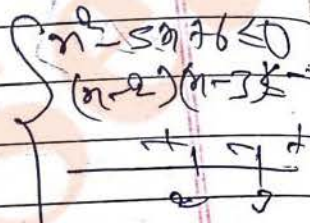 x²-5x+6≤0
(x-2)(x-3)≤
+ - +
2 3